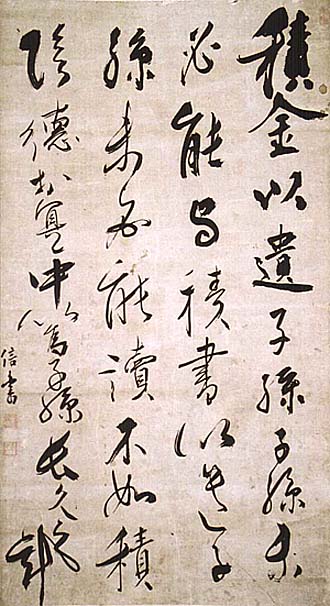 積金以遺子孫子孫未
必能守積書以遺子
孫未必能讀不如積
陰德於冥中以為子孫長久之計
書